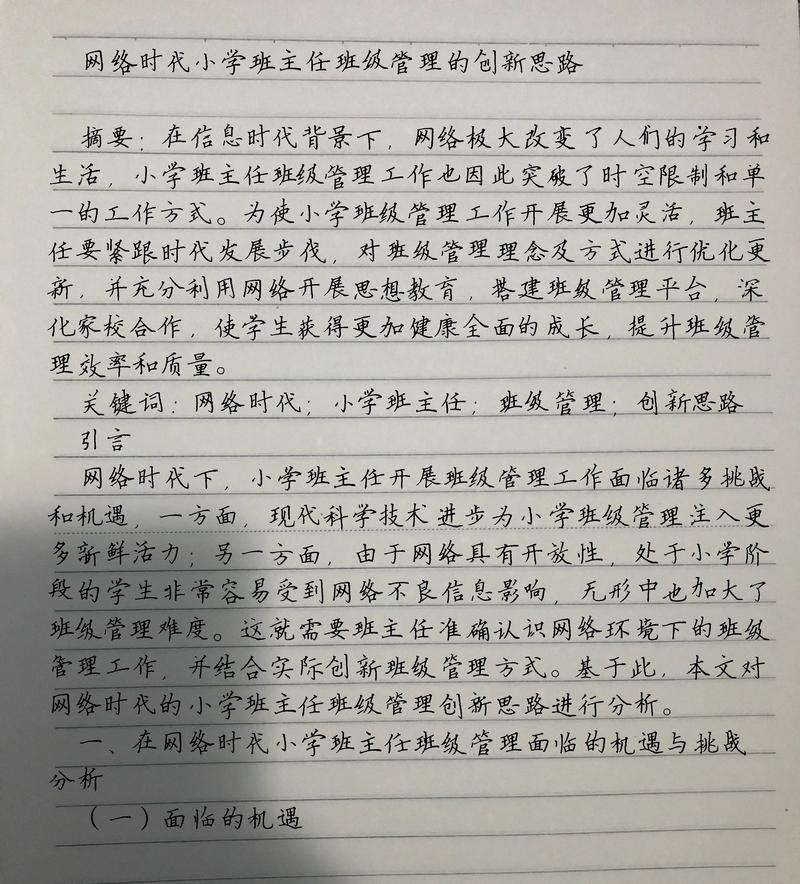 网络时代小学班主任班级管理的创新思路
摘要：在信息时代背景下，网络极大改变了人们的学习和
生活，小学班主任班级管理工作也因此突破了时空限制和单
一的工作方式。为使小学班级管理工作开展更加灵活，班主
任要紧跟时代发展步伐，对班级管理理念及方式进行优化更
新，并充分利用网络开展思想教育，搭建班级管理平台，深
化家校合作，使学生获得更加健康全面的成长，提升班级管
理效率和质量。
关键词：网络时代；小学班主任；班级管理；创新思路
引言
网络时代下，小学班主任开展班级管理工作面临诸多挑战
和机遇，一方面，现代科学技术进步为小学班级管理注入更
多新鲜活力；另一方面，由于网络具有开放性，处于小学阶
段的学生非常容易受到网络不良信息影响，无形中也加大了
班级管理难度。这就需要班主任准确认识网络环境下的班级
管理工作，并结合实际创新班级管理方式。基于此，本文对
网络时代的小学班主任班级管理创新思路进行分析。
一、在网络时代小学班主任班级管理面临的机遇与挑战
分析
（一）面临的机遇